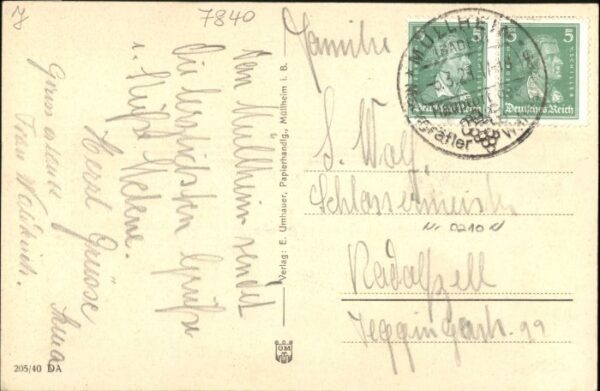 7840
Von Müllheim sendet
die herzlichsten Grüße
u. Küße Helene.
Herzl Grüsse
Anna
Gruss
Frau
Verlag: E. Umhauer, Papierhandlg., Müllheim i. B.
205/40 DA
Familie
S. Wolf
Schlossermeister
Nr 0210
Radolfzell
MÜLLHEIM
(BADEN)
Deutsches Reich
5
Deutsches Reich
5